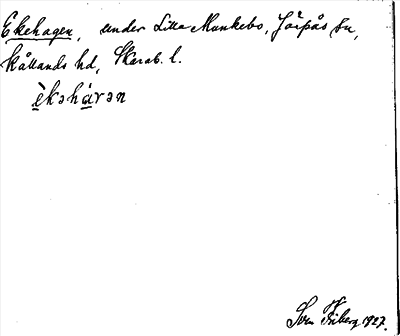 Ekehagen, under Lilla Munkebo, Järpås sn,
Kållands hd, Skarab. l.
è̱kəhá̱rən
Sven Friberg 1927.